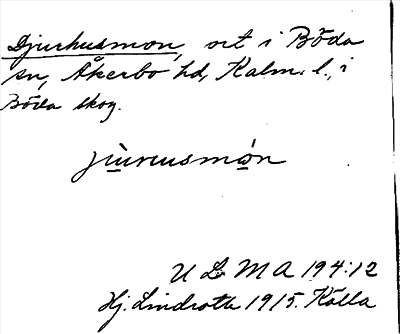 Djurhusmon, ort i Böda
sn, Åkerbo hd, Kalm. l., i
Böda skog.
U L M A 194:12
Hj. Lindroth 1915. Källa